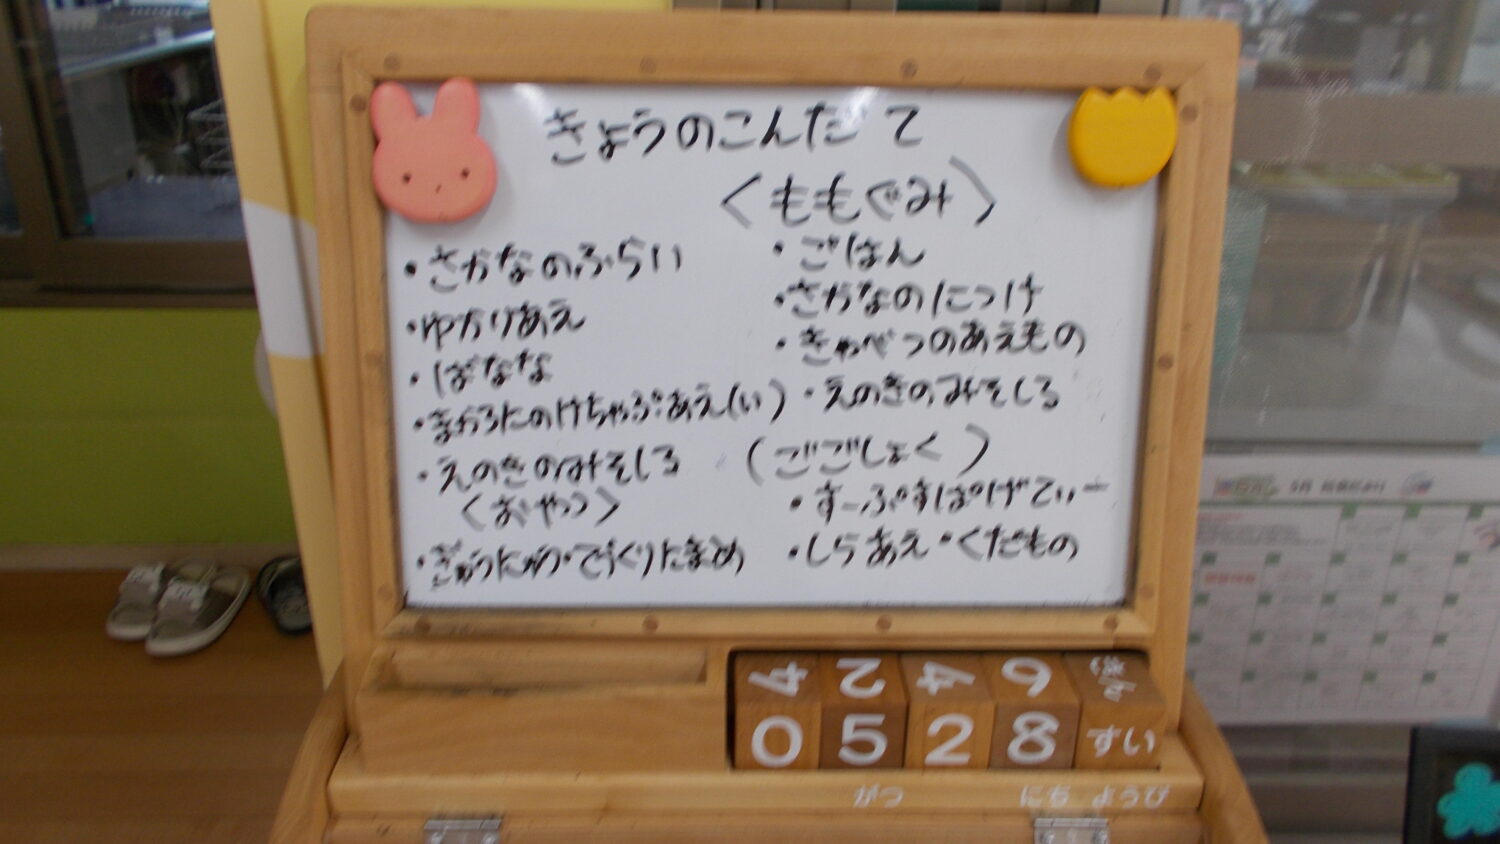 きょうのこんだて
・さかなのふらい
・ゆかりあえ
・ばなな
・まかろにのけちゃぷあえ(い)
・えのきのみそしる
〈おやつ〉
・ぎゅうにゅう・てづくりたまめ
〈ももぐみ〉
・ごはん
・さかなのにつけ
・きゃべつのあえもの
・えのきのみそしる
(ごごしょく)
・すーぷすぱげてぃー
・しらあえ・くだもの
4 2 4 6 きん
0 5 2 8 すい
がつ にち ようび